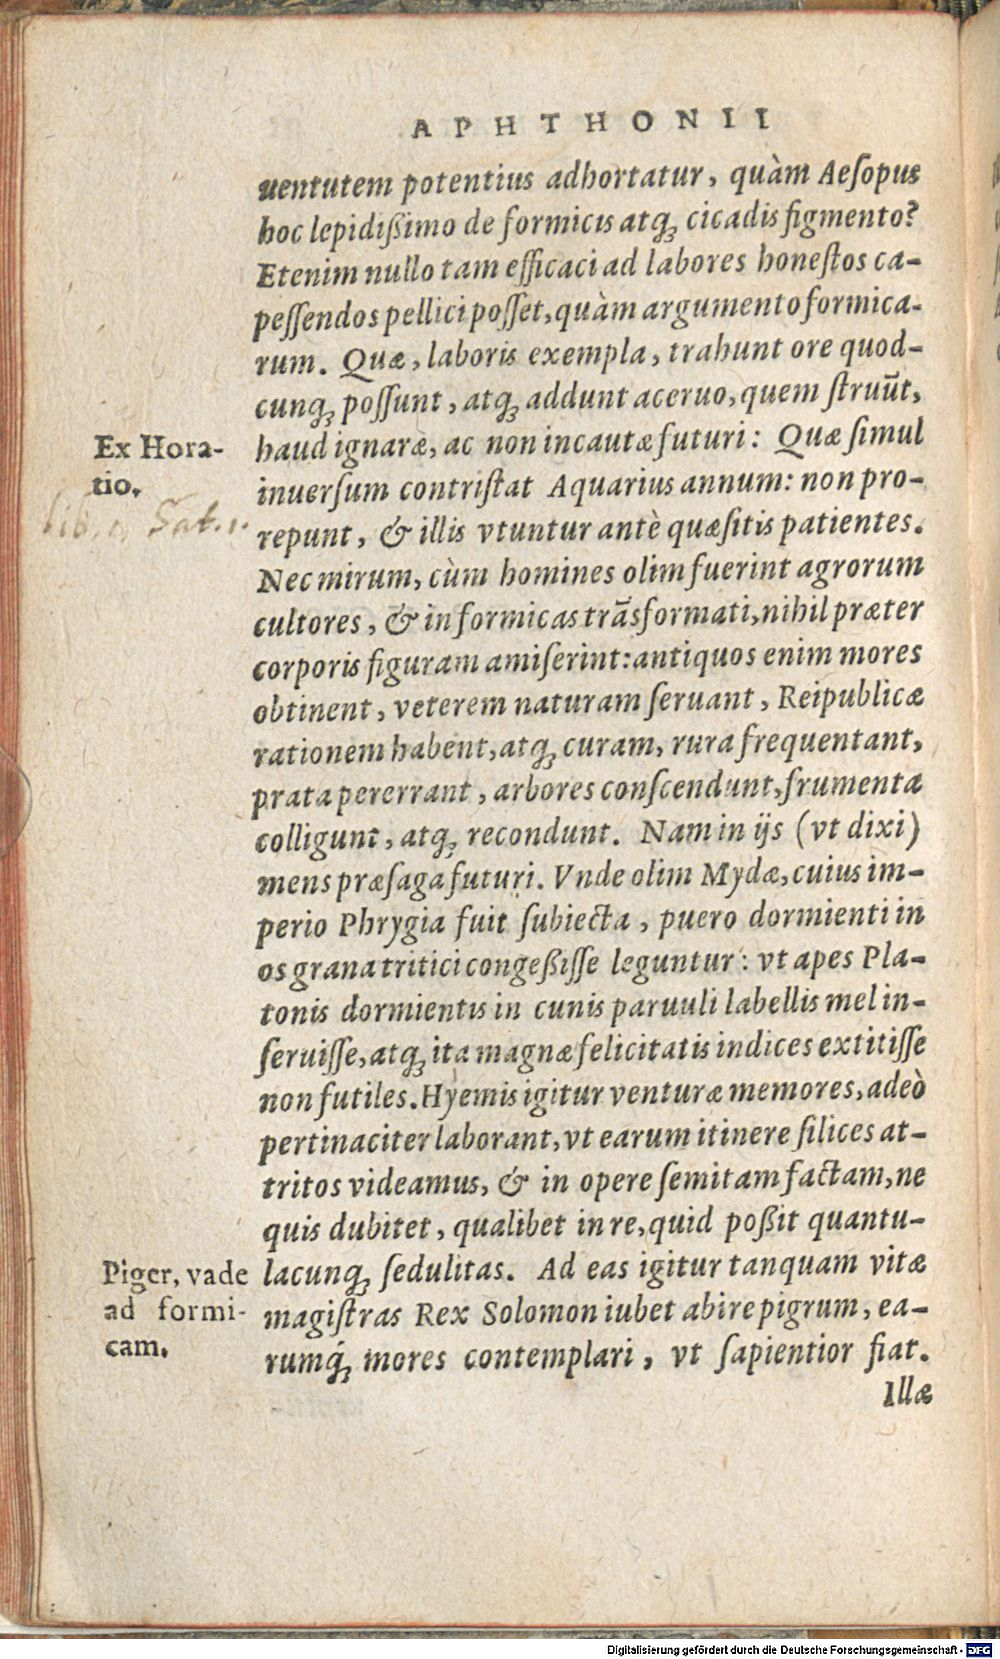 APHTHONII
uentutem potentius adhortatur, quàm Aeſopus
hoc lepidißimo de formicis atq́; cicadis figmento?
Etenim nullo tam efficaci ad labores honeſtos ca-
peſſendos pellici poſſet, quàm argumento formica-
rum. Quæ, laboris exempla, trahunt ore quod-
cunq; poſſunt, atq; addunt aceruo, quem ſtruūt,
Ex Hora-
tio.
lib. 1 Sat. 1.
haud ignaræ, ac non incautæ futuri: Quæ ſimul
inuerſum contriſtat Aquarius annum: non pro-
repunt, & illis vtuntur antè quæſitis patientes.
Nec mirum, cùm homines olim fuerint agrorum
cultores, & in formicas trāsformati, nihil præter
corporis figuram amiſerint: antiquos enim mores
obtinent, veterem naturam ſeruant, Reipublicæ
rationem habent, atq; curam, rura frequentant,
prata pererrant, arbores conſcendunt, frumenta
colligunt, atq; recondunt. Nam in ijs (vt dixi)
mens præſaga futuri. Vnde olim Mydæ, cuius im-
perio Phrygia fuit ſubiecta, puero dormienti in
os grana tritici congeßiſſe leguntur: vt apes Pla-
tonis dormientis in cunis paruuli labellis mel in-
ſeruiſſe, atq; ita magnæ felicitatis indices extitiſſe
non futiles. Hyemis igitur venturæ memores, adeò
pertinaciter laborant, vt earum itinere ſilices at-
tritos videamus, & in opere ſemitam factam, ne
quis dubitet, qualibet in re, quid poßit quantu-
Piger, vade
ad formi-
cam.
lacunq; ſedulitas. Ad eas igitur tanquam vitæ
magiſtras Rex Solomon iubet abire pigrum, ea-
rumq́; mores contemplari, vt ſapientior fiat.
Illæ
Digitalisierung gefördert durch die Deutsche Forschungsgemeinschaft - DFG